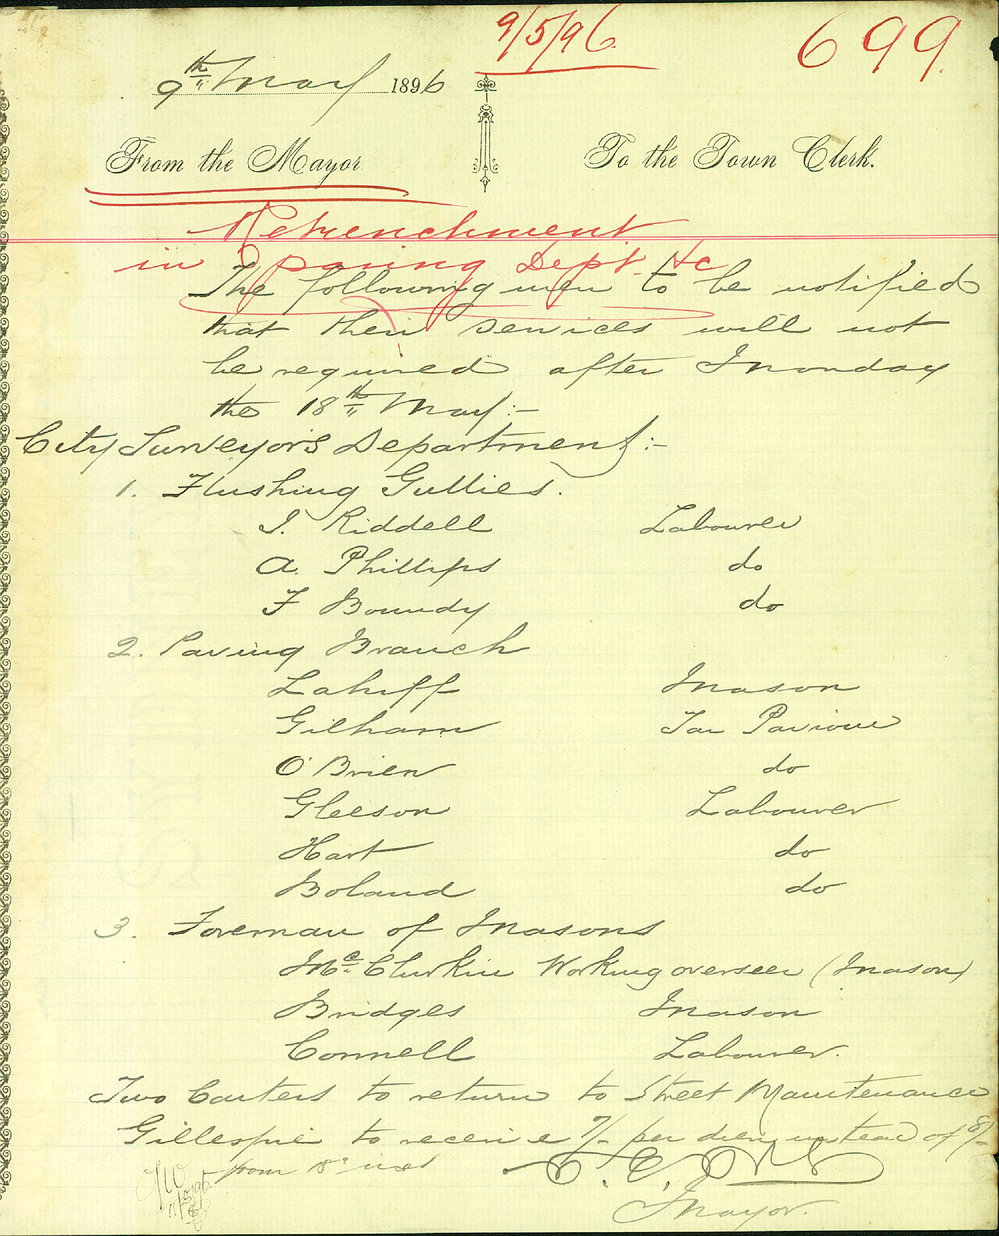 9/5/96.
699.
9th May 1896
From the Mayor
To the Town Clerk.
Retrenchment
in paving Dept &c
The following men to be notified
that their services will not
be required after Monday
the 18th May:-
City Surveyor's Department:-
1. Flushing Gullies.
J. Riddell Labourer
A. Phillips do
F Boundy do
2. Paving Branch
Lahiff Mason
Gilham Tar Paviour
O'Brien do
Gleeson Labourer
Hart do
Boland do
3. Foreman of Masons
McClurkin Working overseer (Mason)
Bridges Mason
Connell Labourer.
Two Carters to return to Street Maintenance
Gillespie to receive 7/- per diem instead of 8/-
from 18th inst
Mayor.